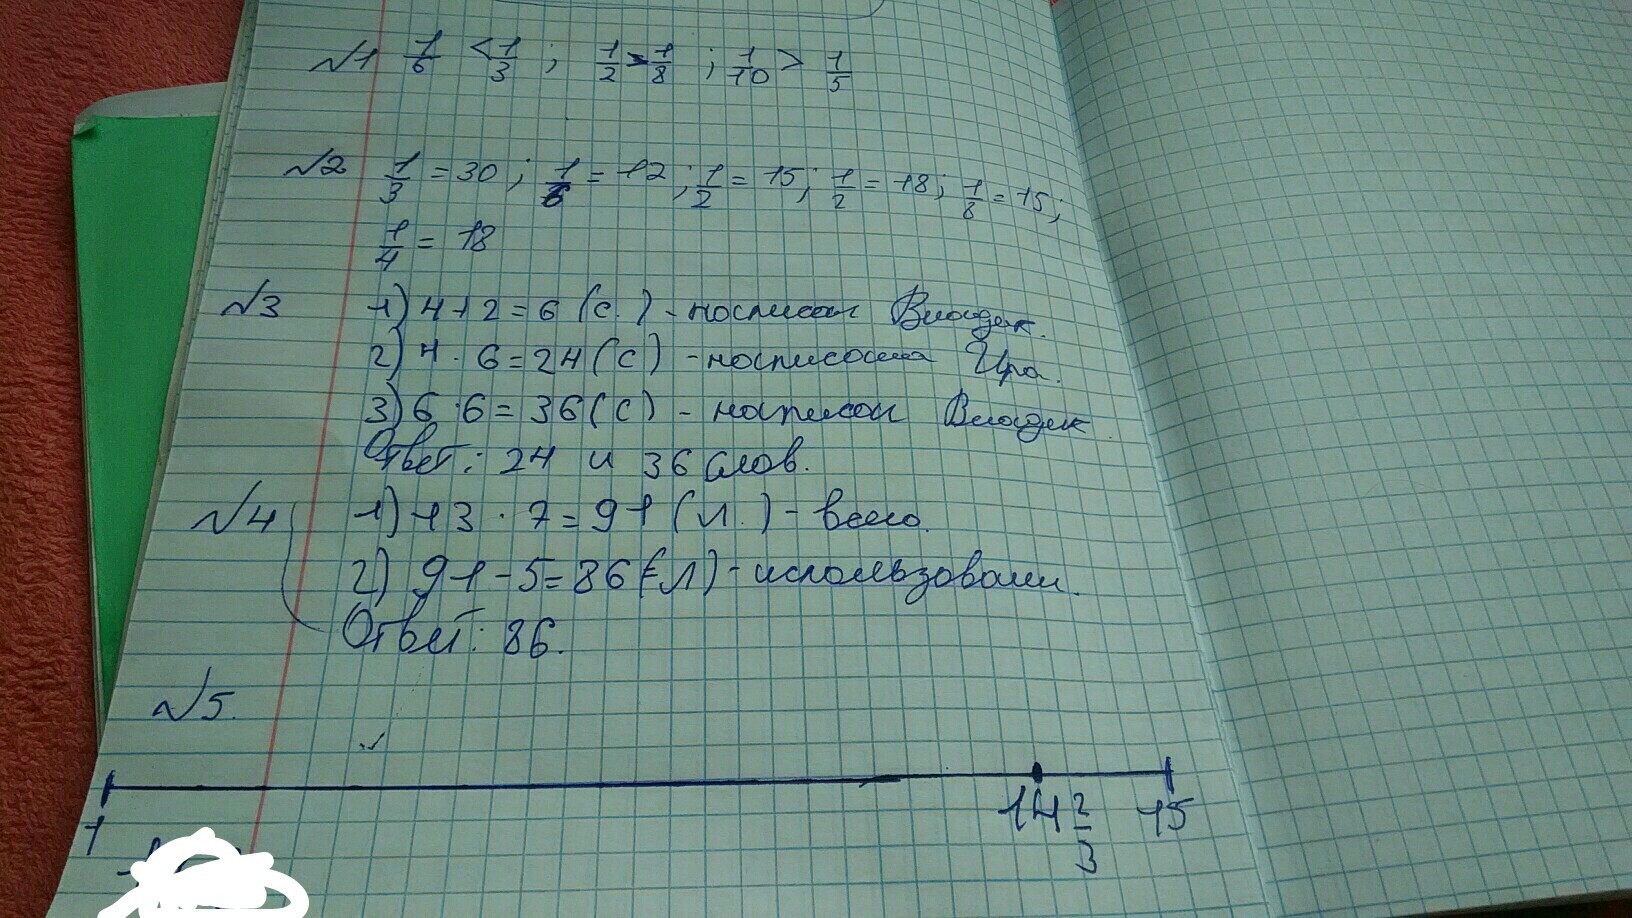 №1 1/6 < 1/3 ; 1/2 > 1/8 ; 1/10 > 1/5
№2 1/3 = 30 ; 1/6 = 12 ; 1/2 = 15 ; 1/2 = 18 ; 1/8 = 15 ;
1/4 = 18
№3 1) 4 + 2 = 6 (с.) - написал Владик.
2) 4 · 6 = 24 (с) - написала Ира.
3) 6 · 6 = 36 (с) - написал Владик
Ответ: 24 и 36 слов.
№4 1) 13 · 7 = 91 (л.) - всего.
2) 91 - 5 = 86 (л) - использовали.
Ответ: 86.
№5.
1 14 2/3 15